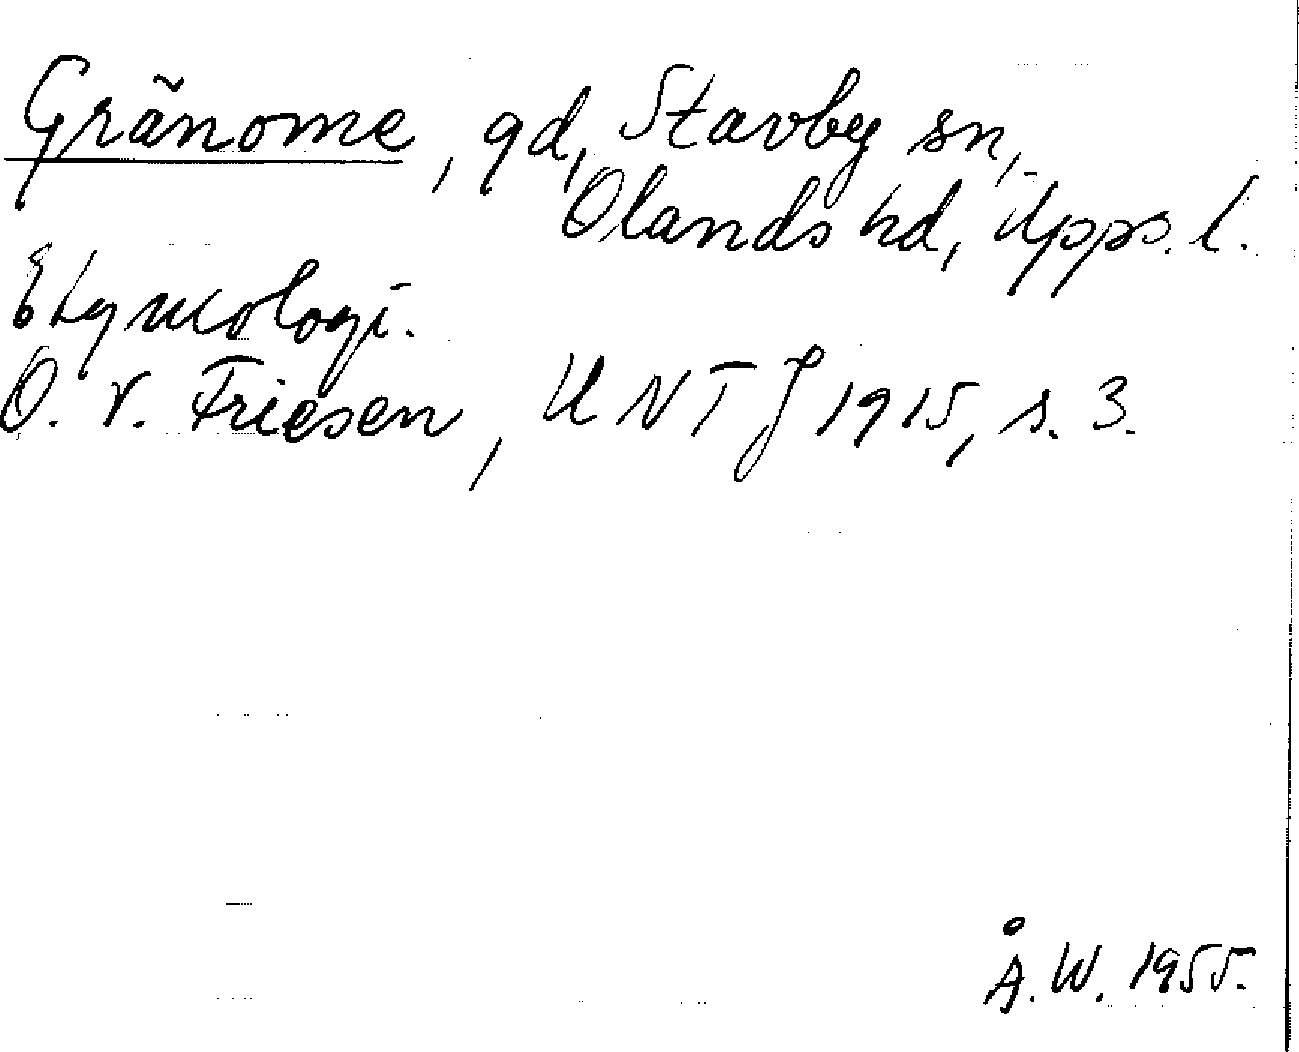 Gränome, gd, Stavby sn,
Olands hd, Upps. l.
Etymologi.
O. v. Friesen, UNTJ 1915, s. 3.
Å. W. 1955.